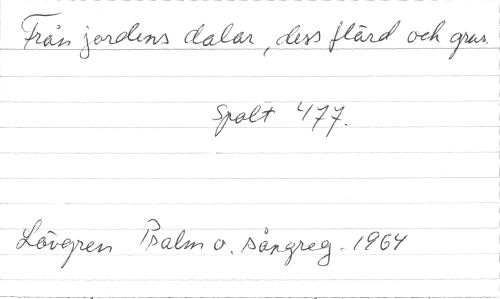 Från jordens dalar, dess flärd och grus.
Spalt 477.
Lövgren Psalm o. sångreg. 1964